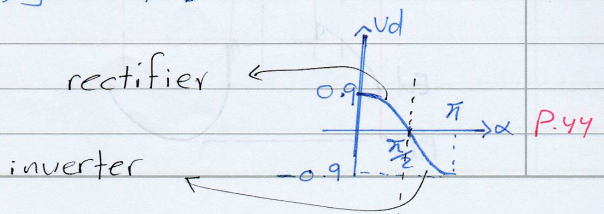 Vd
rectifier
0.9
π
α
P.44
π/2
inverter
-0.9